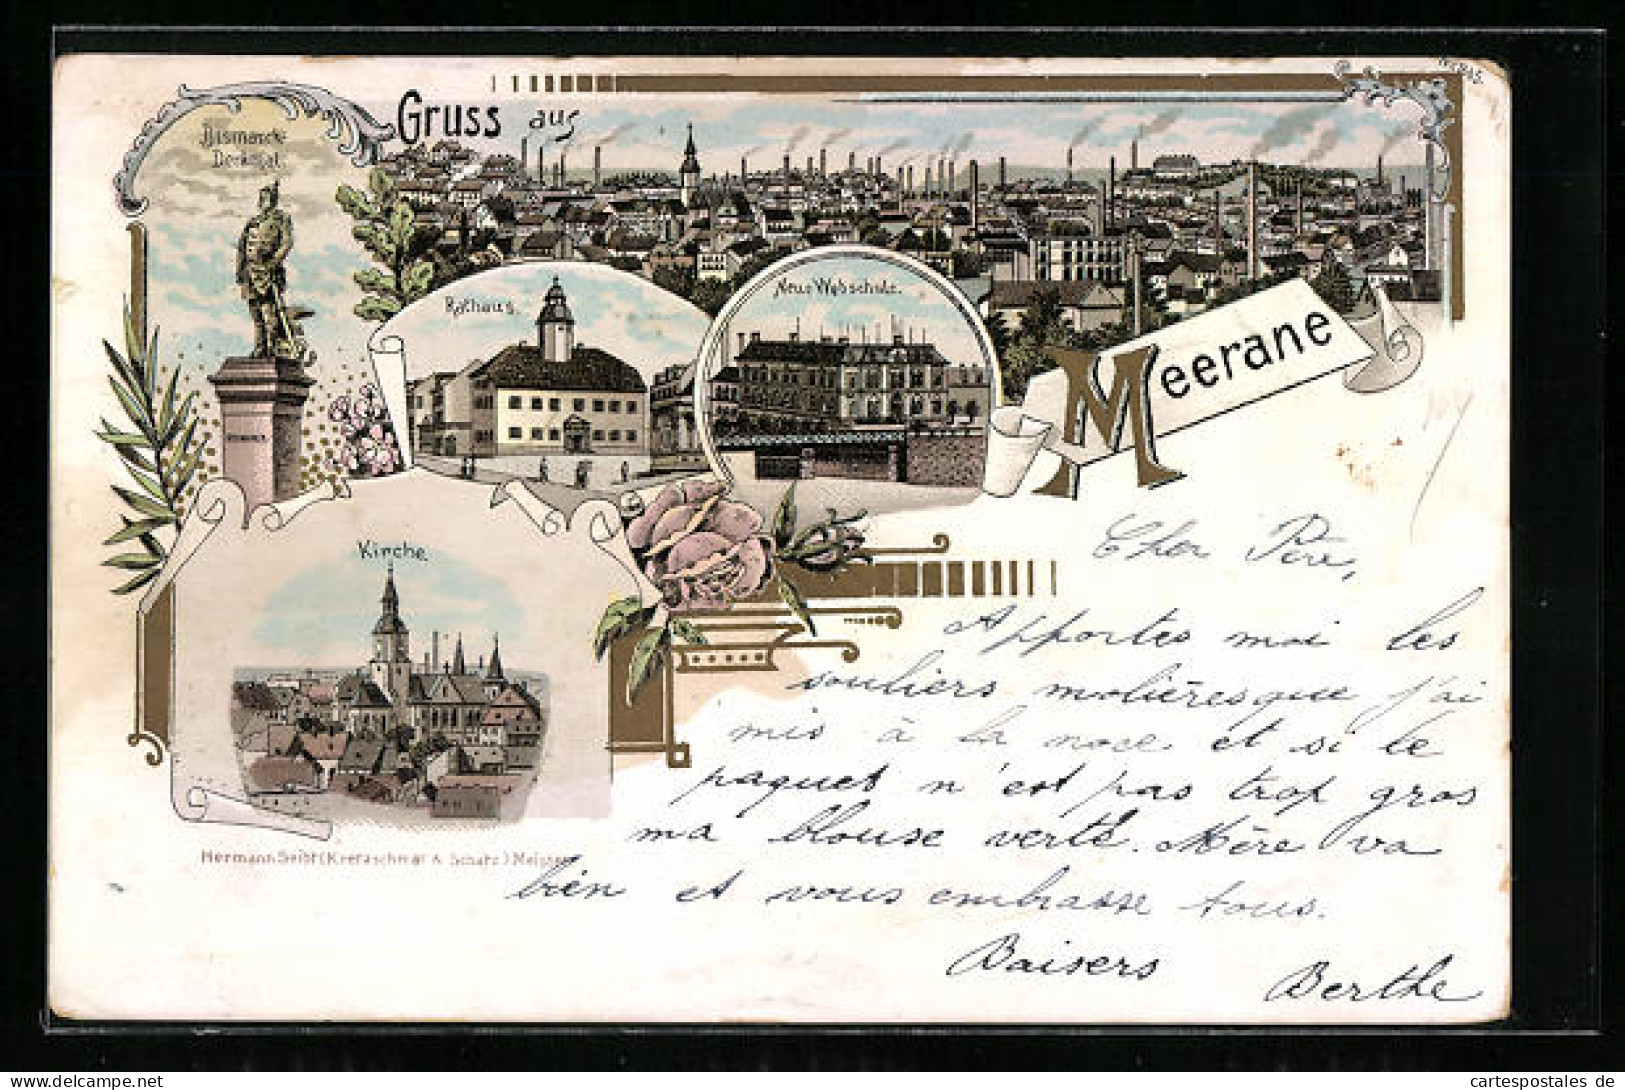 Gruss aus
Bismarck
Denkmal.
Rathaus.
Neue Webschule.
Meerane
Kirche.
Cher Père,
Apportes moi les
souliers molièresque j'ai
mis à la noce et si le
paquet n'est pas trop gros
ma blouse verte. Mère va
bien et vous embrasse tous.
Baisers
Berthe
Hermann Seibt (Kretzschmar & Schatz) Meissen
www.cartespostales.de